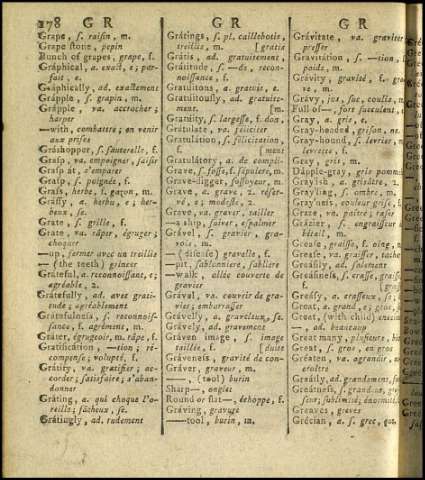 178 G R
G R
G R
Grape, s. raisin, m.
Grape stone, pepin
Bunch of grapes, grape, f.
Gráphical, a. exact, e; per-
fait, e.
Gráphically, ad. exactement
Grápple, s. grapin, m.
Grápple, va. accrocher;
harper
—with, combattre; en venir
aux prises
Gráshopper, s. sauterelle, f.
Grasp, va. empoigner, saisir
Grasp at, s'emparer
Grasp, s. poignée, f.
Grass, herbe, f. gazon, m.
Grássy, a. herbu, e; her-
beux, se.
Grate, s. grille, f.
Grate, va. râper, égruger;
choquer
—up, fermer avec un treillis
— (the teeth) grincer
Gráteful, a. reconnoissant, e;
agréable, 2.
Gràtefully, ad. avec grati-
tude; agréablement
Gràtefulness, s. reconnois-
sance, f. agrémens, m.
Gráter, égrugeoir, m. râpe, f.
Gratification, —tion; ré-
compense; volupté, f.
Grátify, va. gratifier; ac-
corder; satisfaire; s'aban-
donner
Gráting, a. qui choque l'o-
reille; fâcheux, se.
Gràtingly, ad. rudement
Grátings, s. pl. caillebotis,
treillis, m. [gratis
Grátis, ad. gratuitement,
Grátitude, s. —de, recon-
noissance, f.
Gratuitous, a. gratuit, e.
Gratuitously, ad. gratuite-
ment, [m.
Gratuity, s. largesse, f. don,
Grátulate, va. féliciter
Gratulátion, s. félicitation,
f. [ment
Gratulátory, a. de compli-
Grave, s. fosse, f. sépulcre, m.
Grave-digger, fossoyeur, m.
Grave, a. grave, 2. réser-
vé, e; modeste, 2.
Grave, va. graver, tailler
—a ship, suiver, espalmer
Grável, s. gravier, gra-
vois, m.
— (disease) gravelle, f.
—pit, sablonniere, sabliere
—walk, allée couverte de
gravier
Grável, va. couvrir de gra-
vier; embarrasser
Grávelly, a. graveleux, se.
Grávely, ad. gravement
Gráven image, s. image
taillée, f. [duite
Gráveness, gravité de con-
Gráver, graveur, m.
——, (tool) burin
Sharp—, onglet
Round or flat—, échoppe, f.
Gráving, gravure
——tool, burin, m.
Grávitate, va. graviter
presser
Gravitátion, s. —tion, f.
Grávity, gravité, f.
Grávy, jus, suc, coulis, m.
Full of—, fort succulent, e
Gray, a. gris, e.
Gray-headed, grison, ne.
Gray-hound, s. levrier, m.
levrette, f.
Gray, gris, m.
Dápple-gray, gris pommelé
Grayish, a. grisâtre, 2.
Grayling, s. ombre, m.
Gray'ness, couleur grise, f.
Graze, va. paître; raser
Grázier, s. engraisseur
bétail, m.
Grease, graisse, f. oing, m.
Grease, va. graisser,
Gréasily, ad. salement
Gréasiness, s. crasse,
f.
Gréasy, a. crasseux, se;
Great, a. grand, e; gros, se
Great, (with child) enceinte
—, ad. beaucoup
Great many, plusieurs,
Great, s. gros, m.
Great, s. gros, en gros
Gréaten, va. agrandir,
croître
Gréatly, ad. grandement,
Gréatness, s. grandeur,
seur; sublimité,
Greaves, grèves
Grécian, a. grec, que, m.